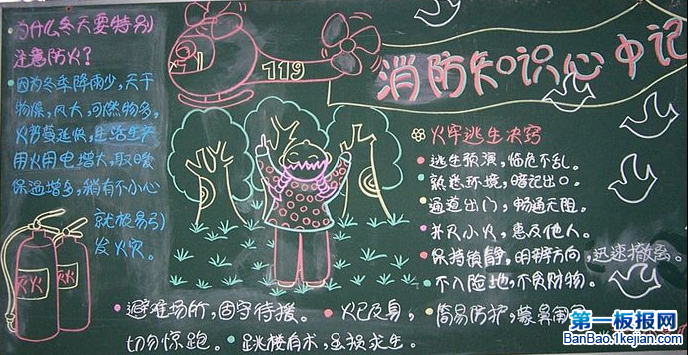 为什么冬天要特别
注意防火？
因为冬季降雨少，天干
物燥，风大，可燃物多，
火势蔓延快，生活生产
用火用电增大，取暖
保温增多，稍有不小心
就极易引
发火灾。
灭火
灭火
119
消防知识心中记
火牢逃生决窍
逃生预演，临危不乱。
熟悉环境，暗记出口。
通道出门，畅通无阻。
扑灭小火，惠及他人。
保持镇静，明辨方向，迅速撤离。
不入险地，不贪财物。
简易防护，蒙鼻匍匐
避难场所，固守待援。
火已及身，
切勿惊跑。
跳楼有术，虽损求生。
第一板报网
BanBao.1kejian.com